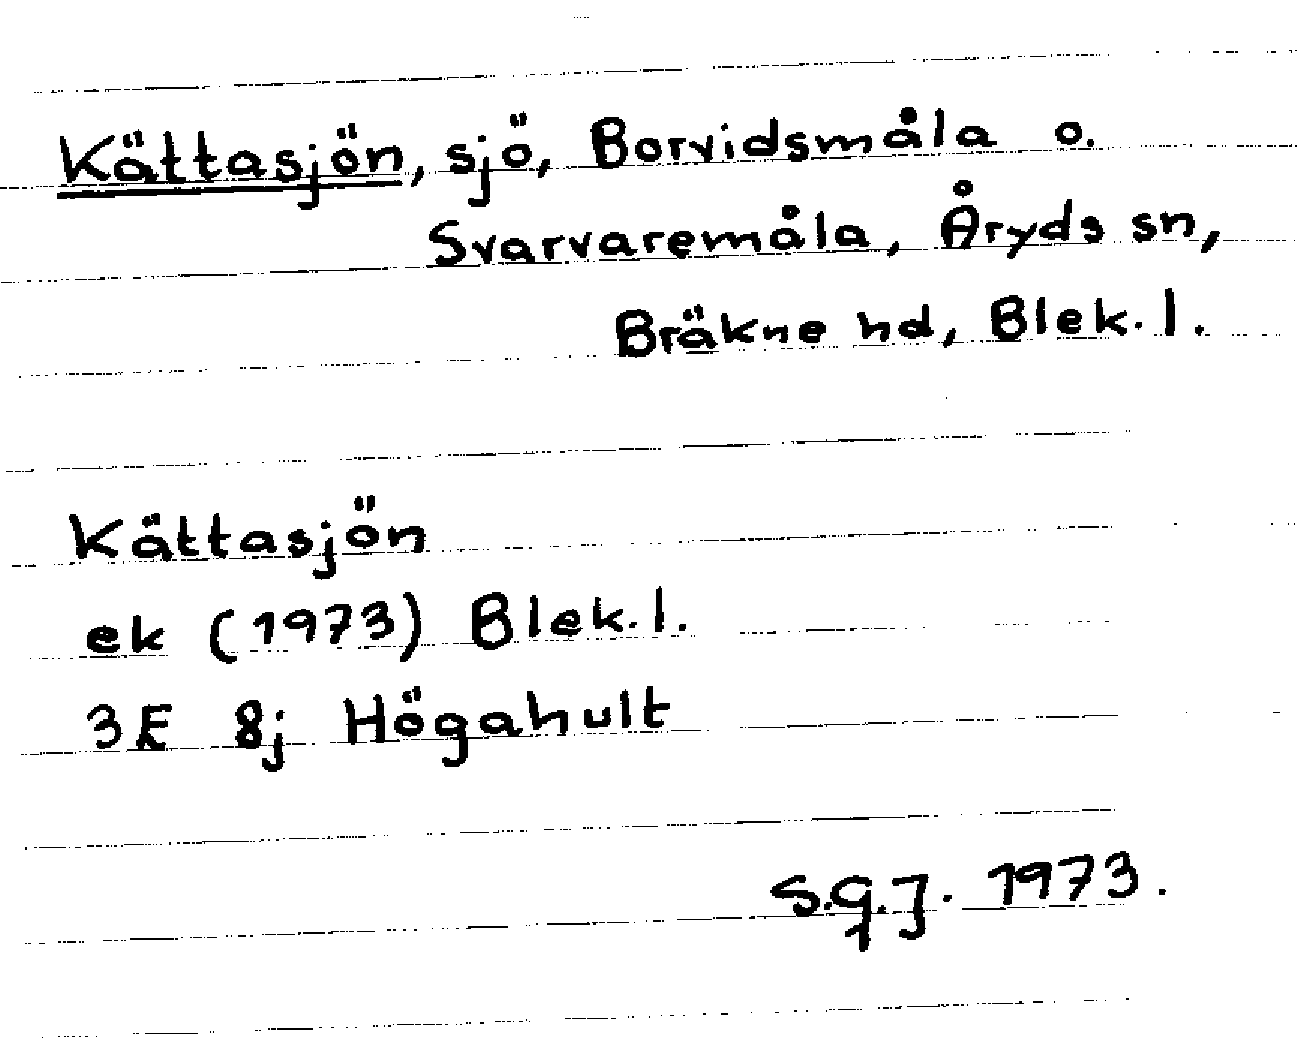 Kättasjön, sjö, Borvidsmåla o.
Svarvaremåla, Åryds sn,
Bräkne hd, Blek. l.
Kättasjön
ek (1973) Blek. l.
3E 8j Högahult
S.G.J. 1973.